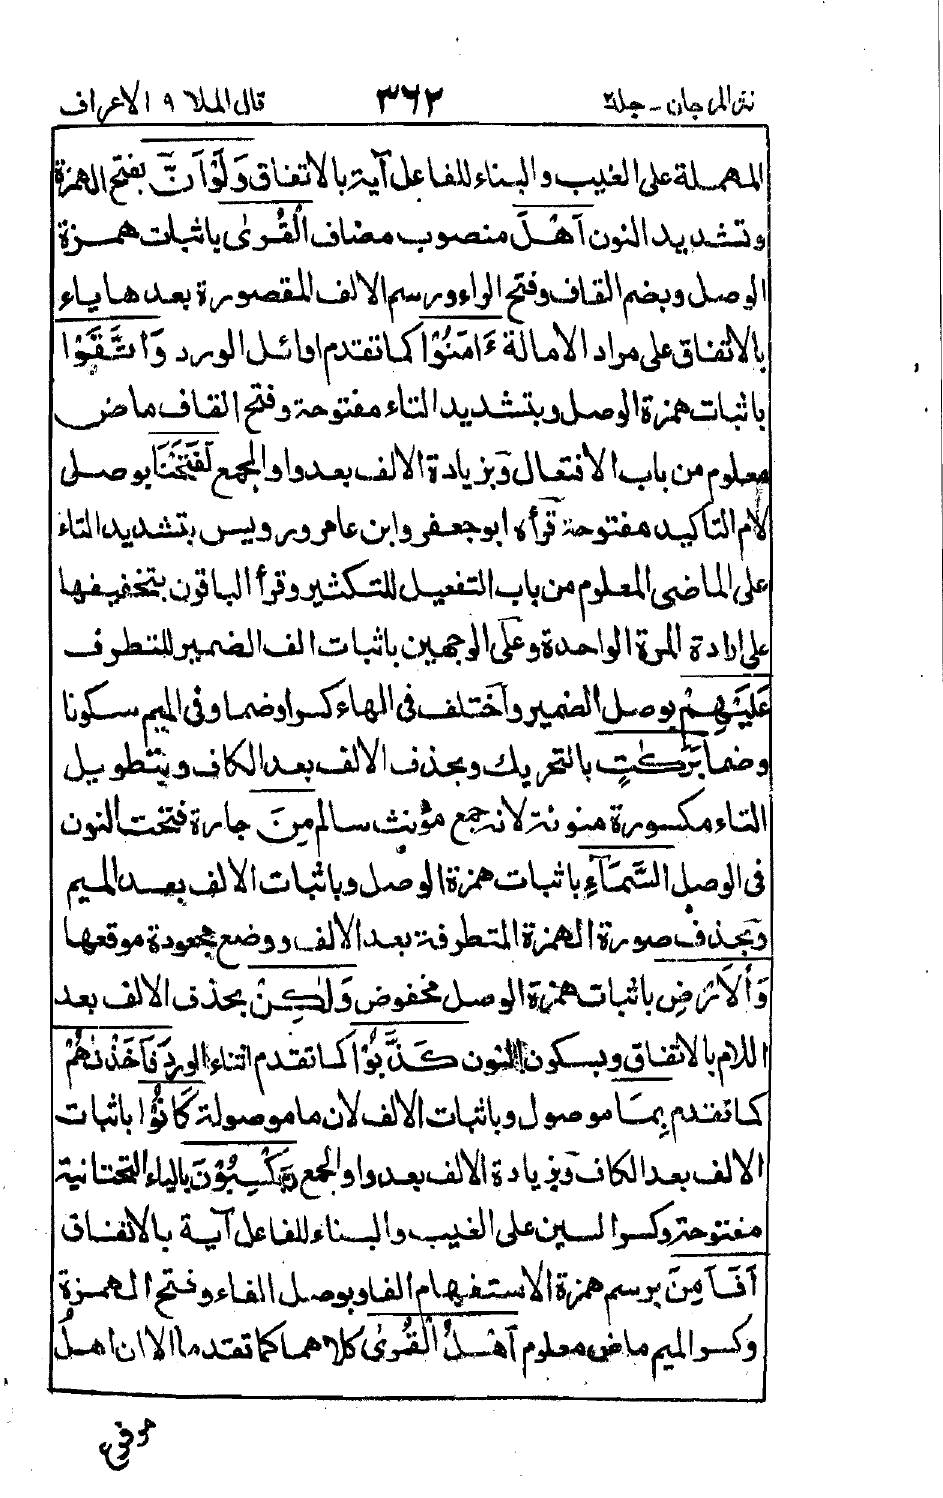 نثر المرجان - جلد٢ ٣٦٢ قال الملا ٩ الاعراف
المهملة على الغيب والبناء للفاعل آية بالاتفاق وَلَوْ اَنَّ بفتح الهمزة
وتشديد النون اَهْلَ منصوب مضاف الْقُرٰى باثبات همزة
الوصل وبضم القاف وفتح الراء ورسم الالف المقصورة بعدها ياء
بالاتفاق على مراد الامالة ءَامَنُوْا كما تقدم اوائل الورد وَاتَّقَوْا
باثبات همزة الوصل وبتشديد التاء مفتوحة وفتح القاف ماض
معلوم من باب الافتعال وَبزيادة الالف بعد واو الجمع لَفَتَحْنَا بوصل
لام التاكيد مفتوحة قرأه ابو جعفر وابن عامر ورويس بتشديد التاء
على الماضى المعلوم من باب التفعيل للتكثير وقرأ الباقون بتخفيفها
على ارادة المرة الواحدة وعلى الوجهين باثبات الف الضمير للتطرف
عَلَيْهِمْ بوصل الضمير واختلف فى الهاء كسرا وضما وفى الميم سكونا
وضما بَرَكٰتٍ بالتحريك وبحذف الالف بعد الكاف وبتطويل
التاء مكسورة منونة لانه جمع مؤنث سالم مِنَ جارة فتحت النون
فى الوصل السَّمَآءِ باثبات همزة الوصل وباثبات الالف بعد الميم
وبحذف صورة الهمزة المتطرفة بعد الالف ووضع مجعودة موقعها
وَالْاَرْضِ باثبات همزة الوصل مخفوض وَلٰكِنْ بحذف الالف بعد
اللام بالاتفاق وبسكون النون كَذَّبُوْا كما تقدم اثناء الورد فَاَخَذْنٰهُمْ
كما تقدم بِمَا موصول وباثبات الالف لان ما موصولة كَانُوْا باثبات
الالف بعد الكاف وَبزيادة الالف بعد واو الجمع يَكْسِبُوْنَ بالياء التحتانية
مفتوحة وكسر السين على الغيب والبناء للفاعل آية بالاتفاق
اَفَاَمِنَ برسم همزة الاستفهام الفا وبوصل الفاء وفتح الهمزة
وكسر الميم ماض معلوم اَهْلُ الْقُرٰى كلاهما كما تقدما الا ان اهلُ